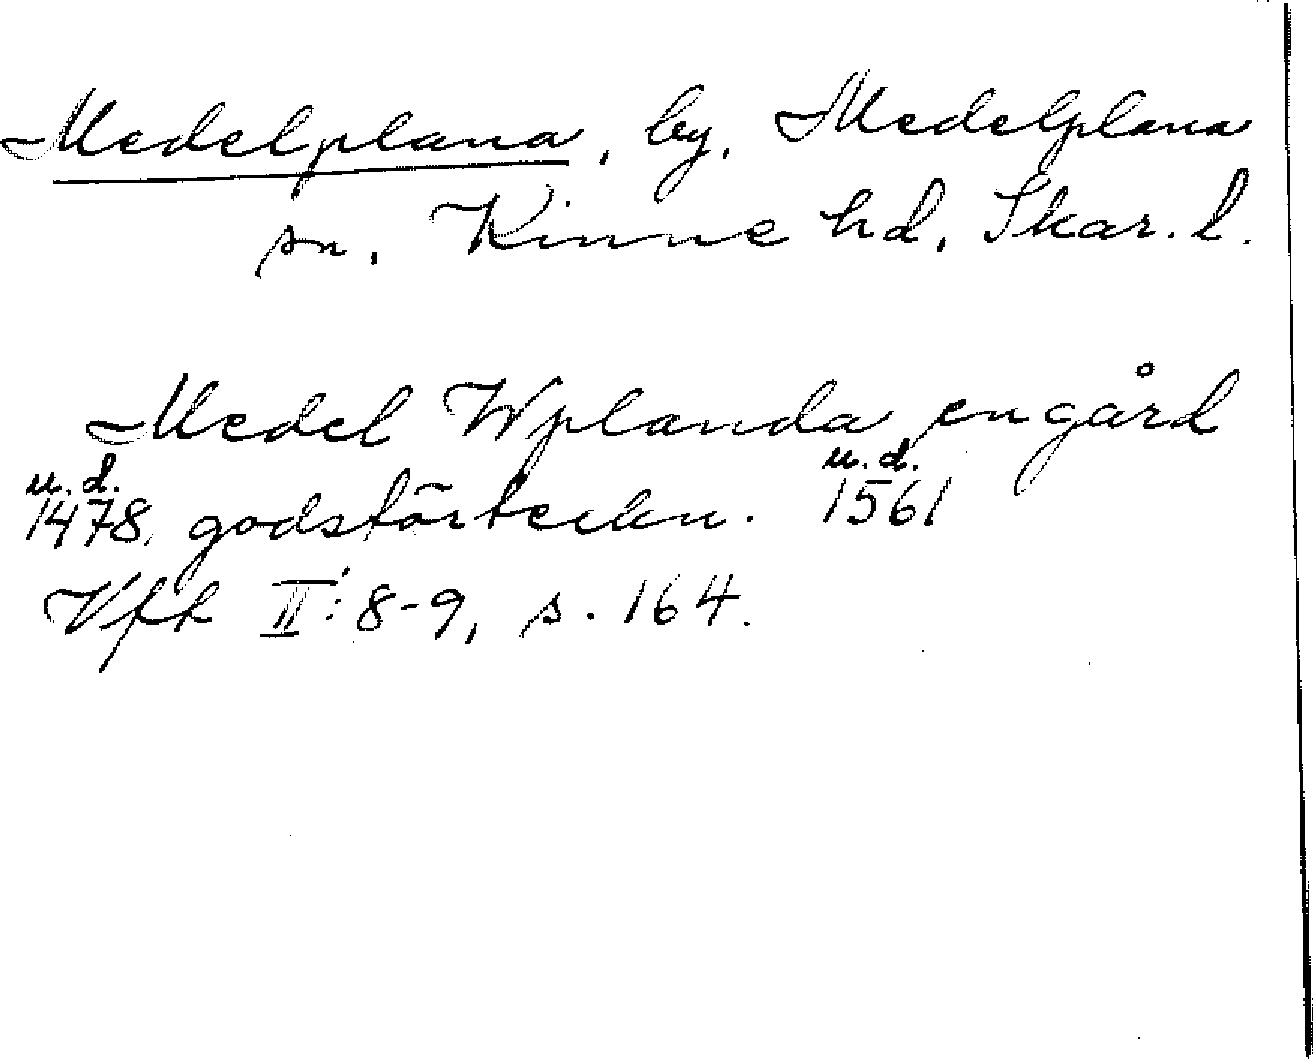 Medelplana, by, Medelplana
sn, Kinne hd, Skar. l.
Medel Wplanda en gård
u. d. u. d.
1478, godsförteckn. 1561
Vfk II: 8-9, s. 164.